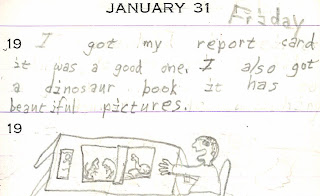 JANUARY 31
Friday
19 I got my report card
it was a good one. I also got
a dinosaur book it has
beautiful pictures.
19